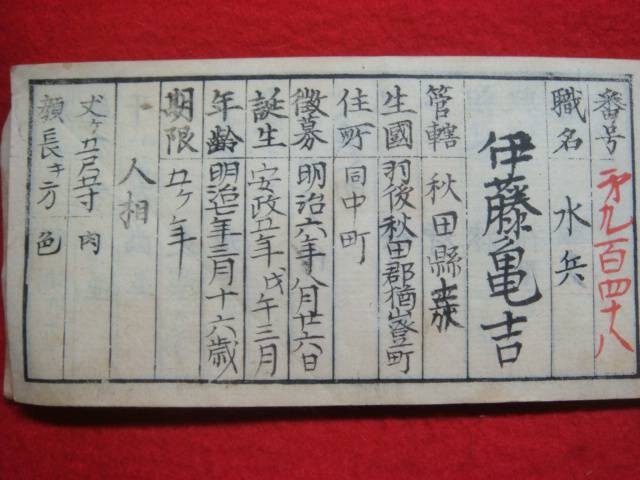 番号 第九百四十八
職名 水兵
伊藤亀吉
管轄 秋田縣士族
生國 羽後秋田郡楢山登町
住町 同中町
徴募 明治六年八月廿六日
誕生 安政五年戊午三月
年齢 明治七年三月十六歳
期限 五ヶ年
人相
丈ケ五尺五寸 肉
顔長キ方 色